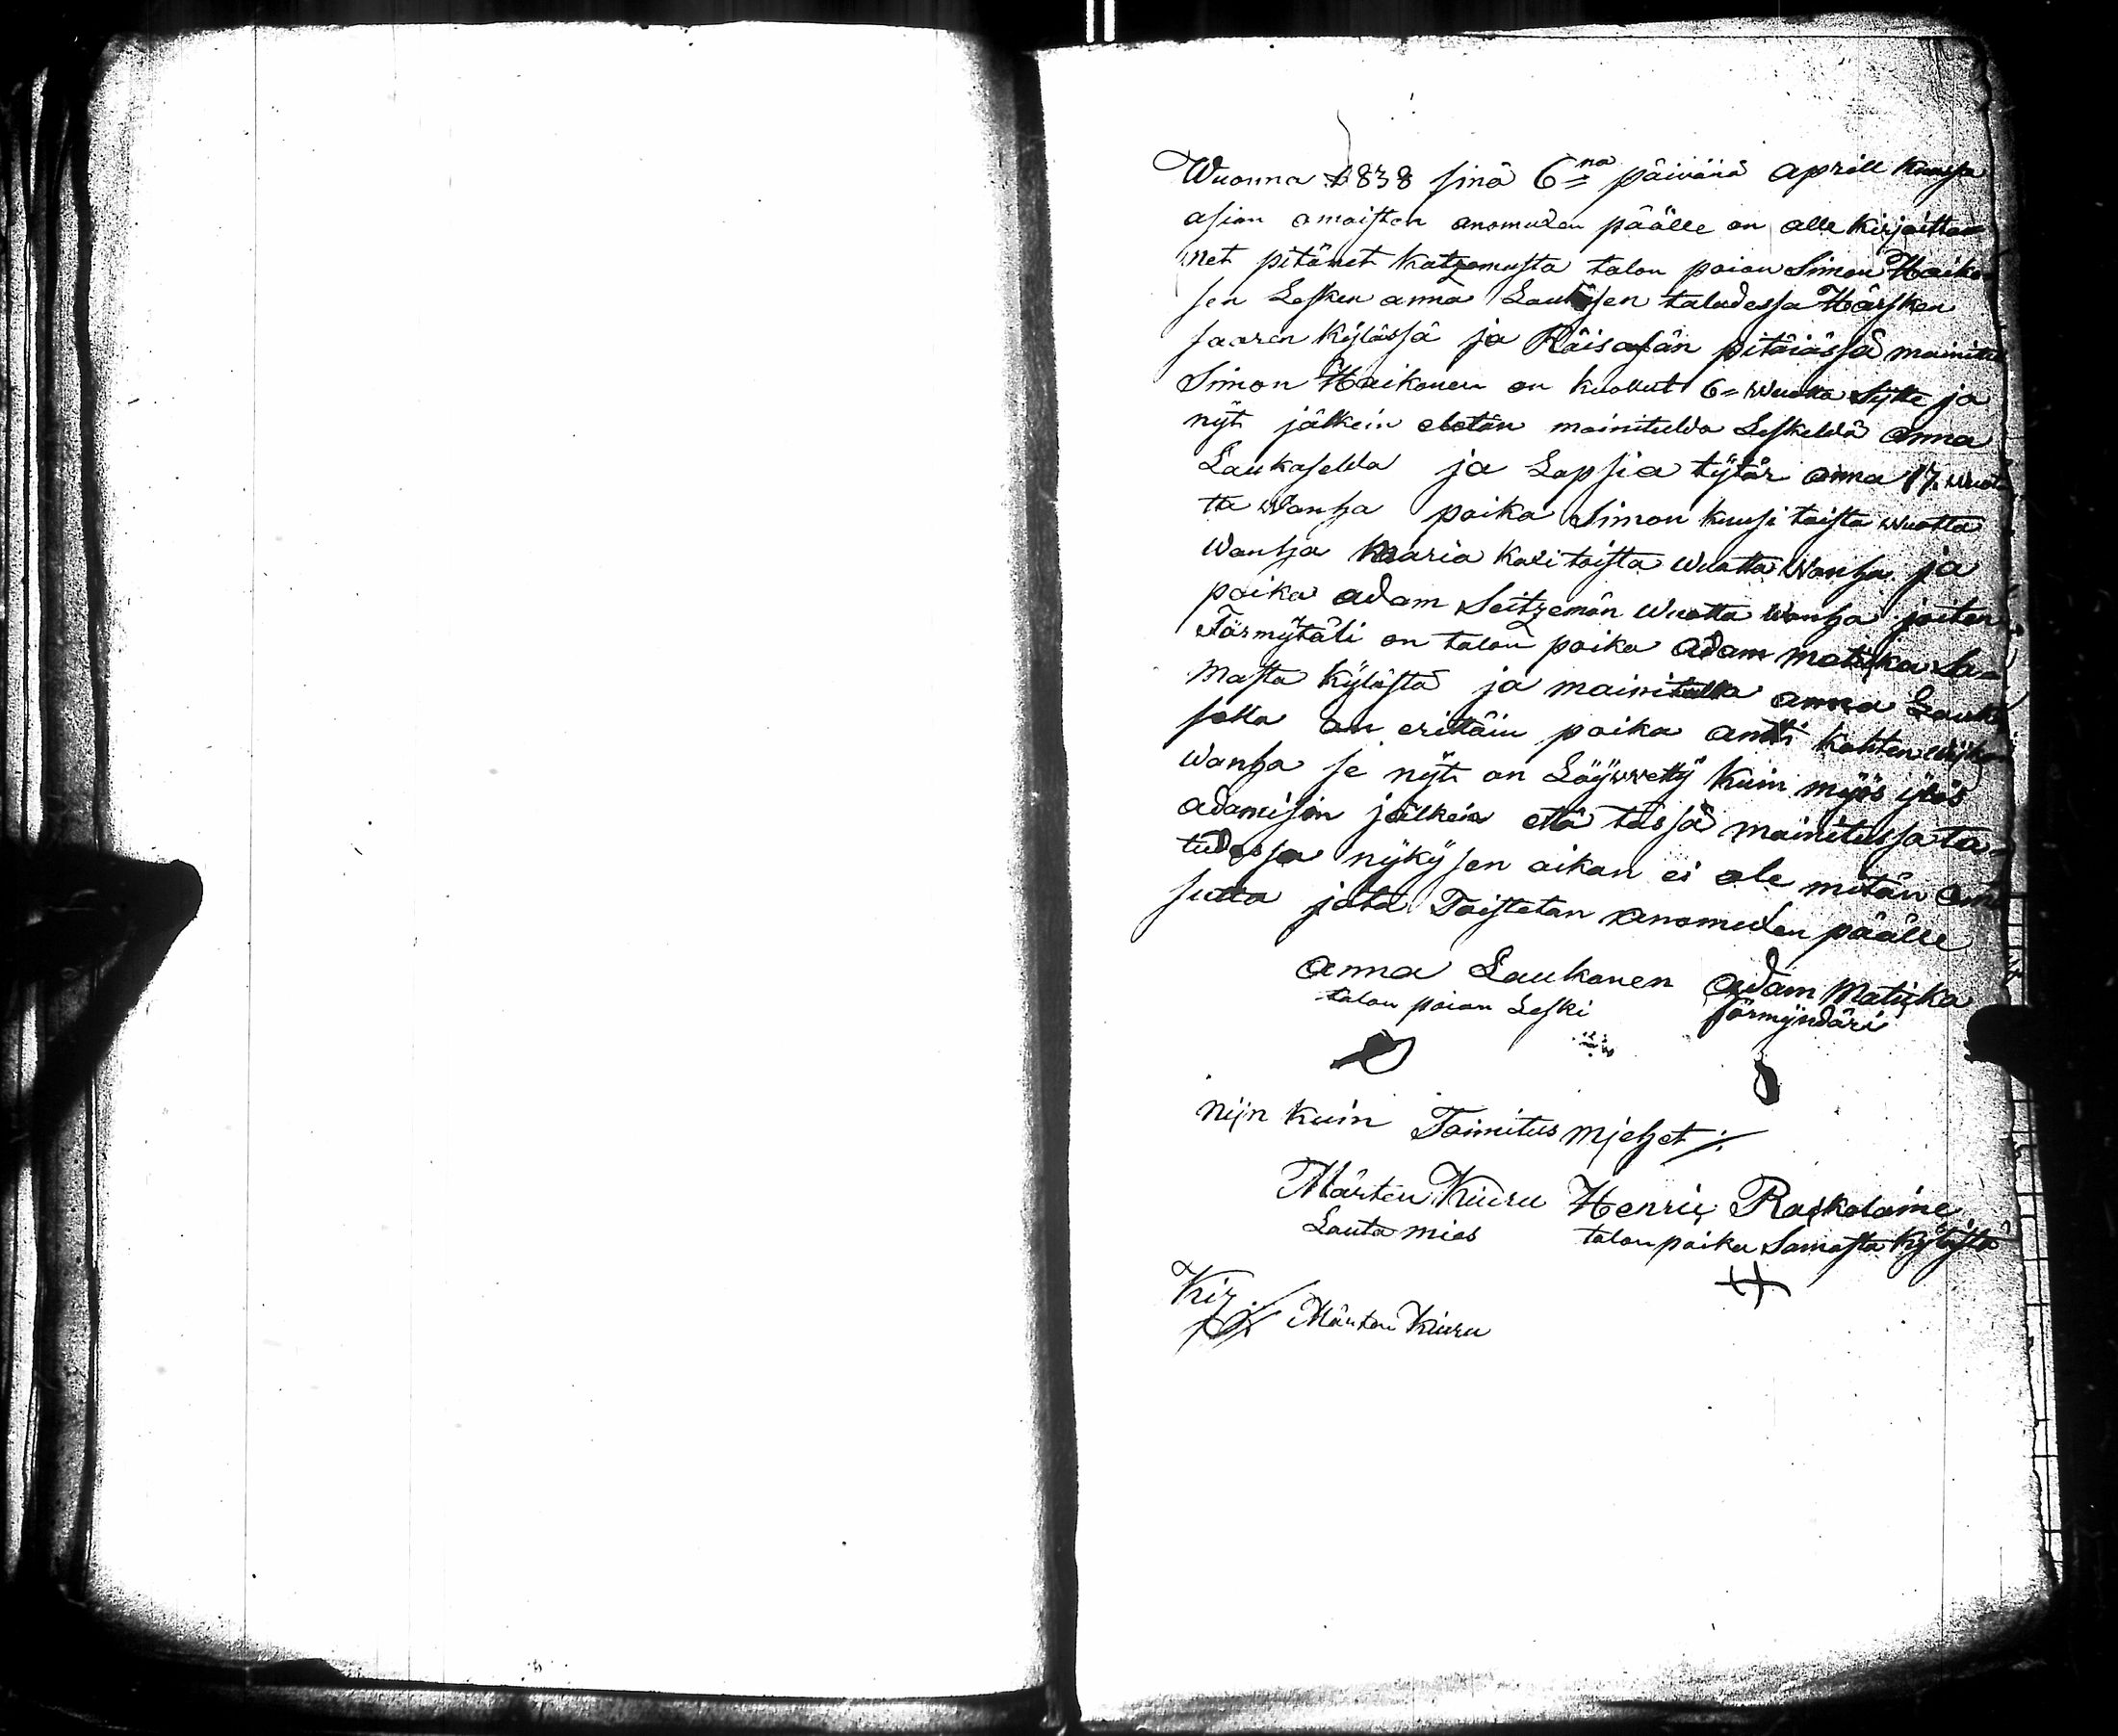 Wuonna 1838 sinä 6=na päivänä Aprill kuussa
asian omaisten anomuden päälle on alle kirjoitta
net pitänet katzomusta talon poian Simon Haiko
sen Lesken anna Laukasen taludessa Härsken
saaren kylässä ja Räisälän pitäiässä mainitu
Simon Haikonen on kuollut 6= wuotta sytte ja
nyt jälkein eletän mainitulda Leskeldä anna
Laukaselda ja Lapsia tytär anna 17 wuot
ta wanha poika Simon kuusi toista wuotta
wanha Maria kaxi toista wuotta wanha ja
poika adam Seitzemän wuotta wanha joiten
Förmytäri on talon poika adam Matiska Sa=
masta kylästä ja mainitulla anna Lauka
sella on erittäin poika antti kahten wiiko
wanha se nyt on Löywetty kuin myös ylös
adamisin jälkein että tässä mainitussa ta=
ludessa nykysen aikan ei ole mitän oma
sutta jota Toistetan anomuden päälle
Anna Laukanen Adam Matiska
talon poian Leski förmyndäri
nijn kuin Toimitus mjehet ./.
Mårten Kiuru Henric Raskolaine
Lauta mies talon poika Samasta kylästä
Kirj Mårten Kiuru